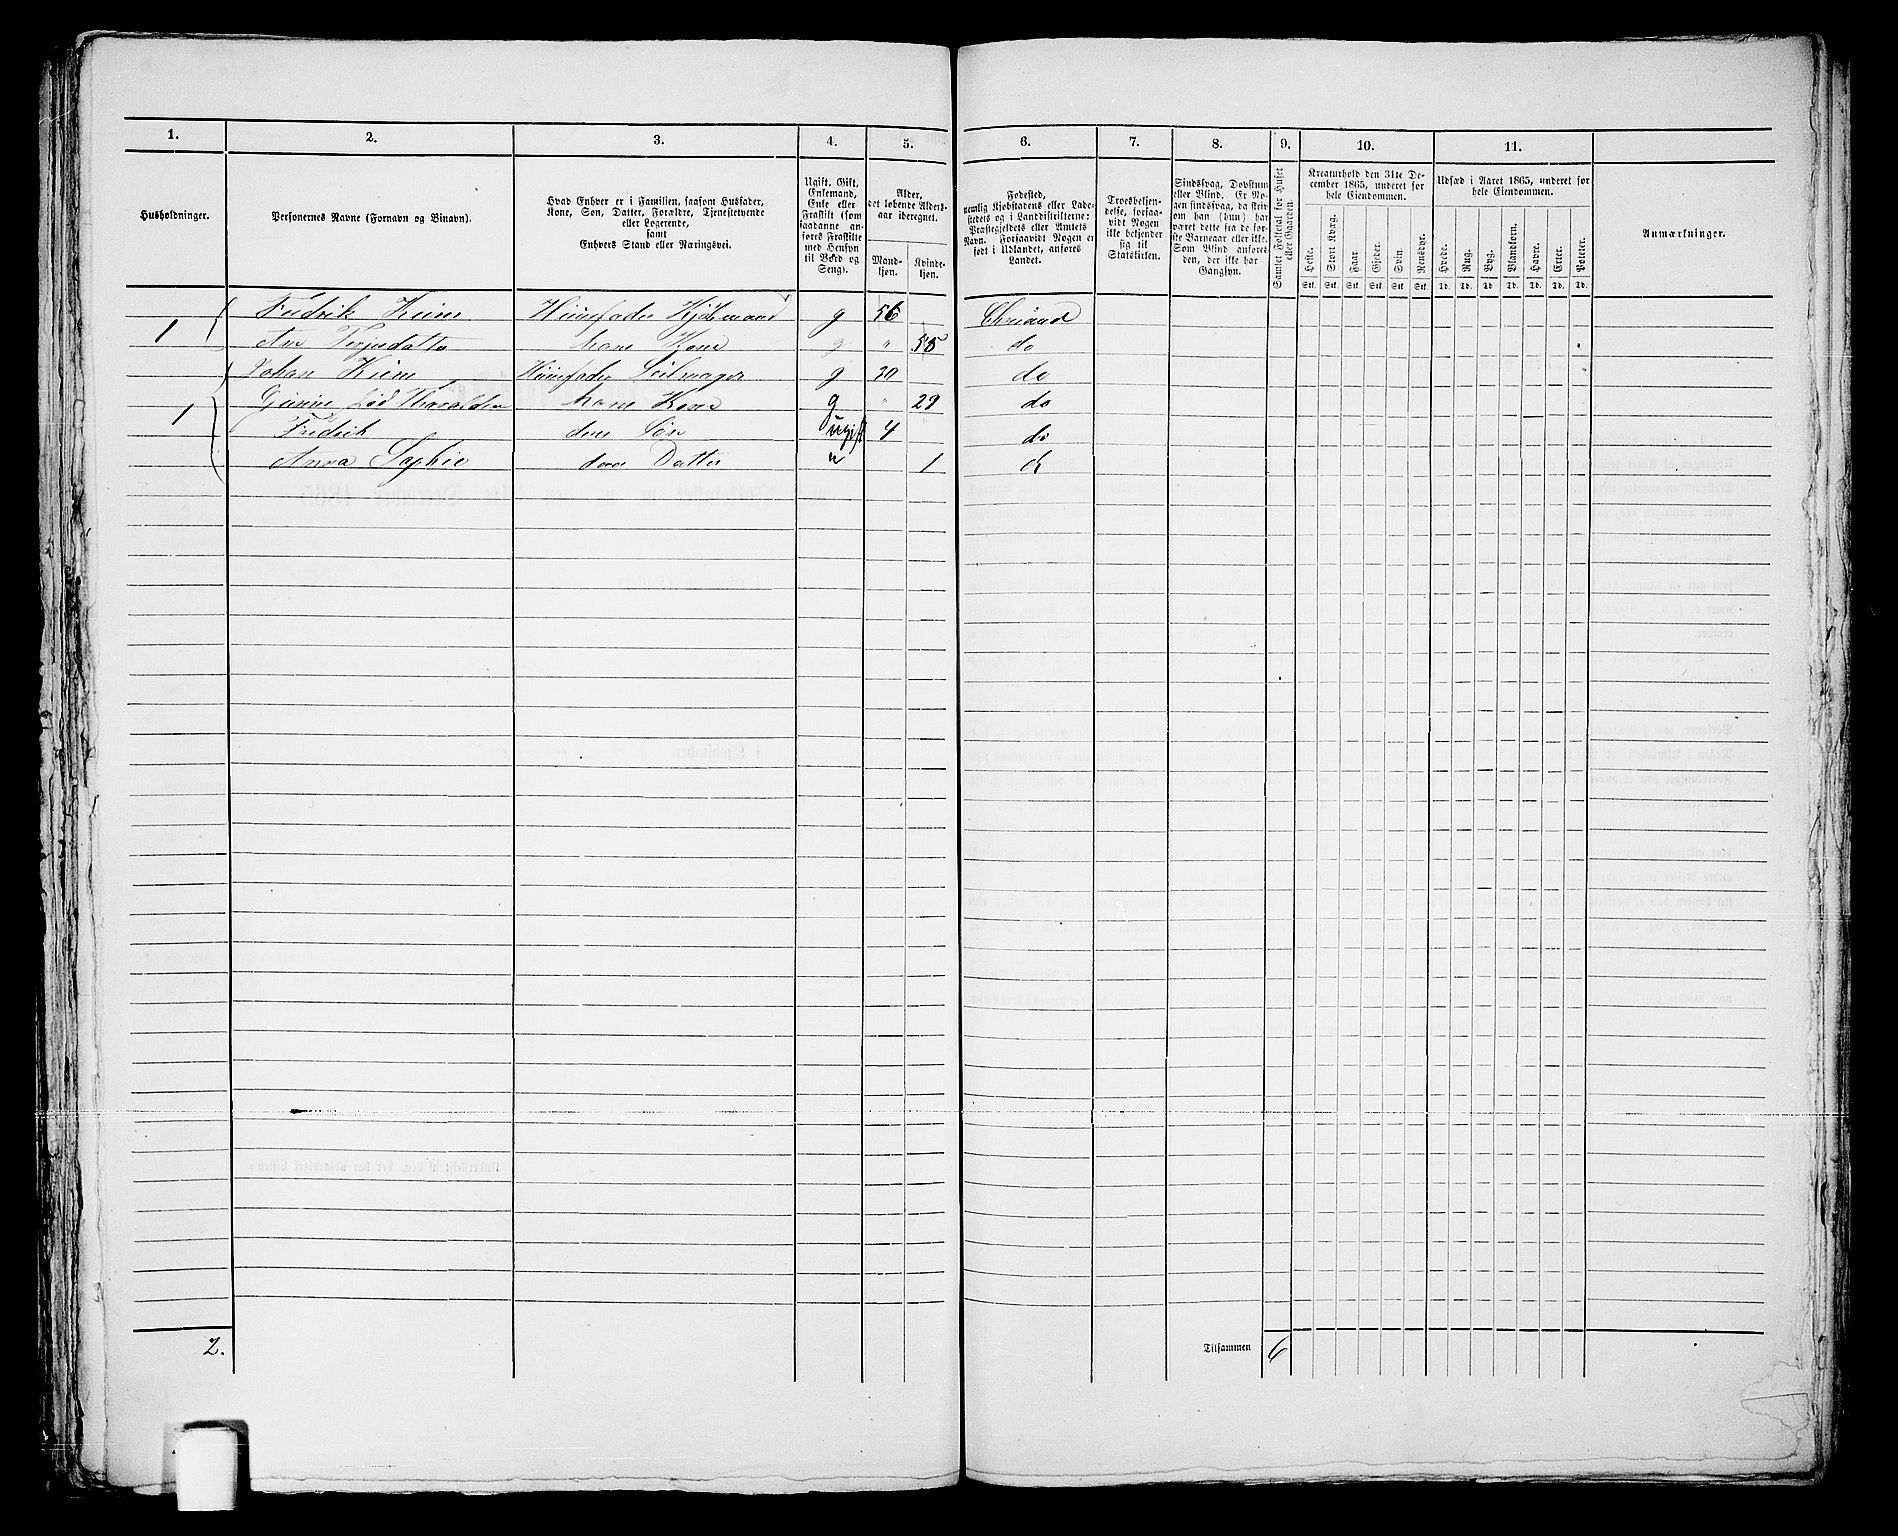 1. 2. 3. 4. 5. 6. 7. 8. 9. 10. 11.
Husholdninger.
Personernes Navne (Fornavn og Binavn).
Hvad Enhver er i Familien, saasom Husfader,
Kone, Søn, Datter, Forældre, Tjenestetyende
eller Logerende,
samt
Enhvers Stand eller Næringsvei.
Ugift, Gift,
Enkemand,
Enke eller
Fraskilt (som
saadanne an-
føres Fraskilte
med Hensyn
til Bord og
Seng).
Alder,
det løbende Alders-
aar iberegnet.
Mand-
kjøn.
Kvinde-
kjøn.
Fødested,
nemlig Kjøbstadens eller Lade-
stedets og i Landdistrikterne:
Præstegjeldets eller Amtets
Navn. Forsaavidt Nogen er
født i Udlandet, anføres
Landet.
Troesbekjen-
delse, forsaa-
vidt Nogen
ikke bekjender
sig til
Statskirken.
Sindssvag, Døvstum
eller Blind. Er No-
gen sindssvag, da skriv
om han (hun) har
været dette fra de før-
ste Barneaar eller ikke.
Som Blind anføres
den, der ikke har
Gangsyn.
Samlet Folketal for Huset
eller Gaarden.
Kreaturhold den 31te De-
cember 1865, underet for
hele Eiendommen.
Heste. Stort Kvæg. Faar Gjeder. Svin. Rensdyr.
Stk. Stk. Stk. Stk. Stk. Stk.
Udsæd i Aaret 1865, underet for
hele Eiendommen.
Hvede. Rug. Byg. Blandkorn. Havre. Erter. Poteter.
Td. Td. Td. Td. Td. Td. Td.
Anmærkninger.
Fredrik Huusfader g 56
1 Terjesdatter hans Kone g " 55 do
Johan Huusfader Seilmager g 30 do
1 hans Kone g " 29 do
Fredrik deres Søn ugift 4 do
Anna Sophie deres Datter u 1 do
2.
Tilsammen 6